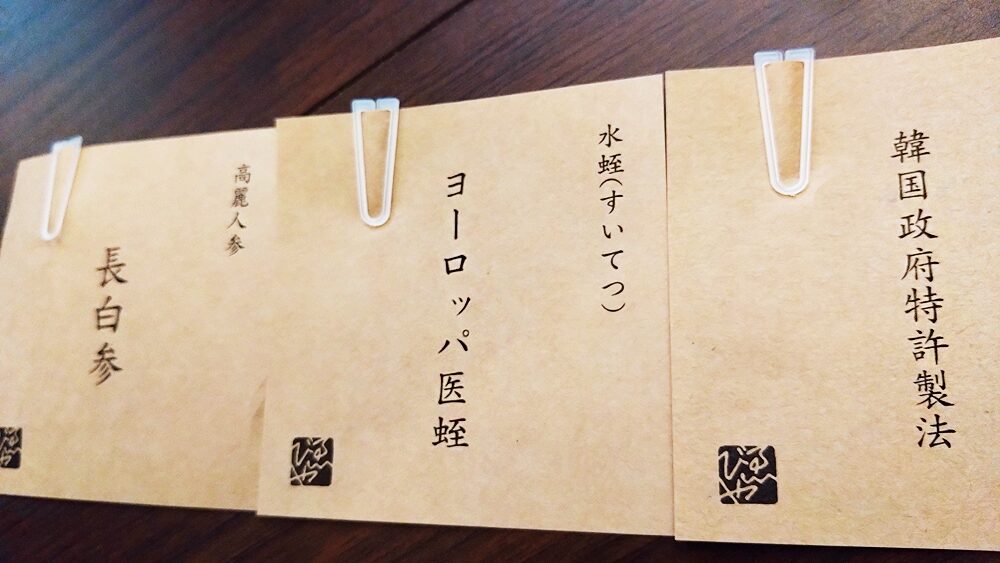 韓国政府特許製法
ひるや
水蛭(すいてつ)
ヨーロッパ医蛭
ひるや
高麗人参
長白参